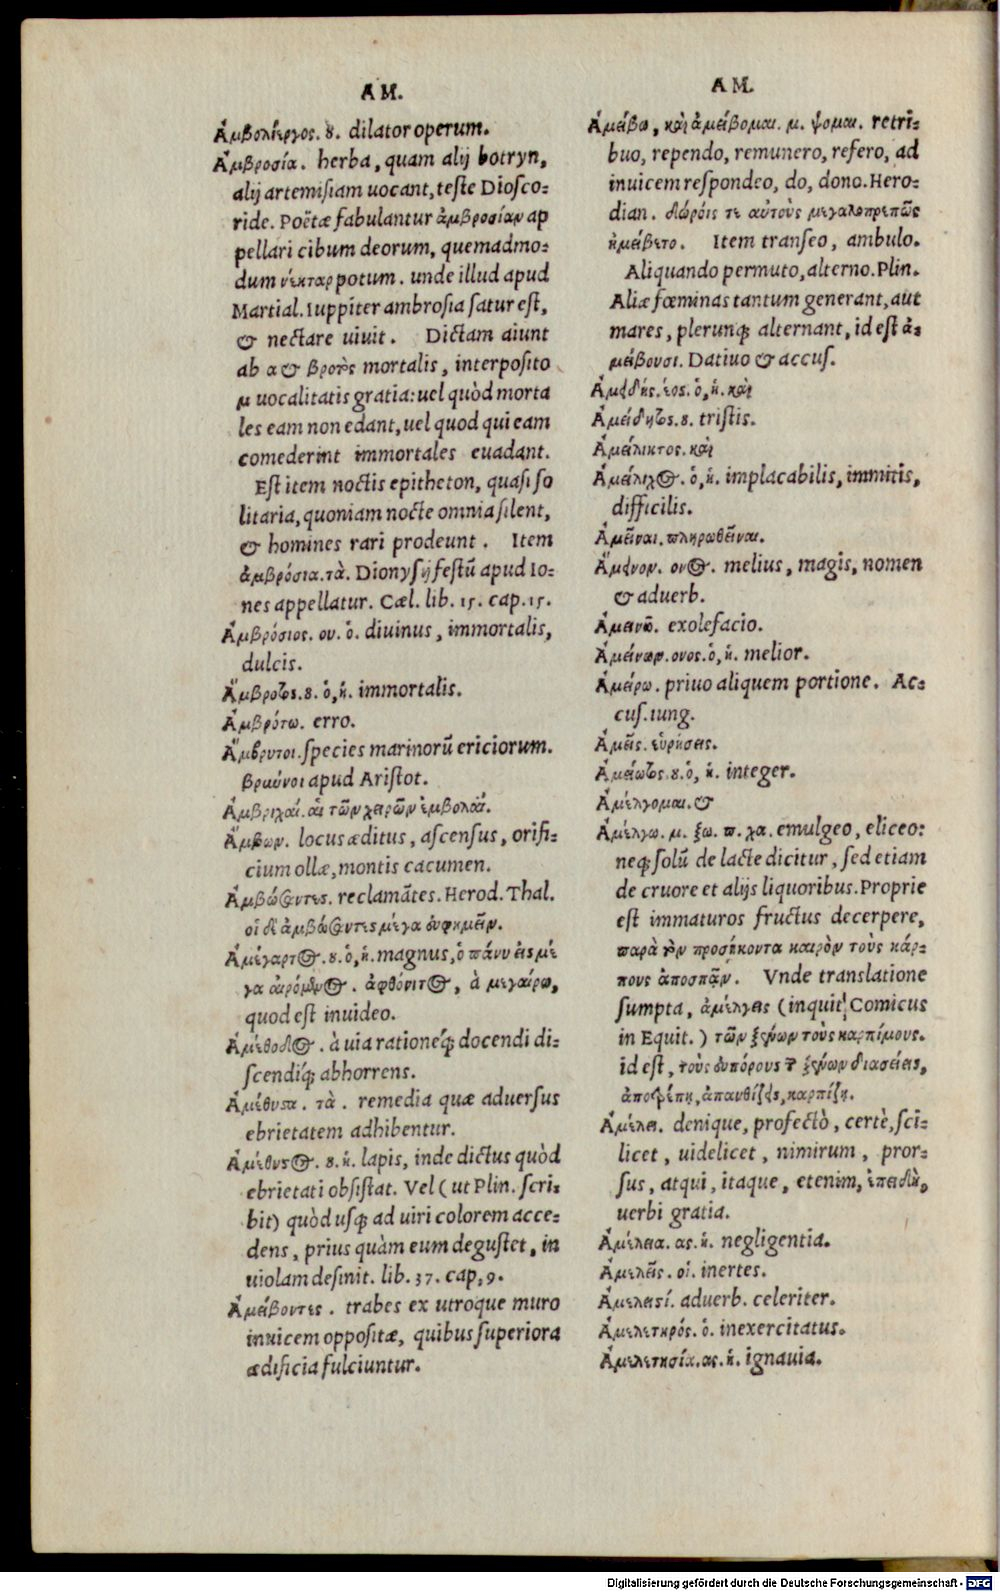 AM.
Ἀμβολίεργος. ȣ. dilator operum.
Ἀμβροσία. herba, quam alij botryn,
alij artemisiam uocant, teste Diosco-
ride. Poëtæ fabulantur ἀμβροσίαν ap
pellari cibum deorum, quemadmo-
dum νέκταρ potum. unde illud apud
Martial. Iuppiter ambrosia satur est,
& nectare uiuit. Dictam aiunt
ab α & βροτὸς mortalis, interposito
μ uocalitatis gratia: uel quòd morta
les eam non edant, uel quod qui eam
comederint immortales euadant.
Est item noctis epitheton, quasi so
litaria, quoniam nocte omnia silent,
& homines rari prodeunt. Item
ἀμβρόσια. τὰ. Dionysij festũ apud Io-
nes appellatur. Cæl. lib. 15. cap. 15.
Ἀμβρόσιος. ου. ὁ. diuinus, immortalis,
dulcis.
Ἄμβροτος. ȣ. ὁ, ἡ. immortalis.
Ἀμβρότω. erro.
Ἄμβρυτοι. species marinorũ ericiorum.
βρύων οι apud Aristot.
Ἀμβριχαί. αἱ τῶν χειρῶν ἐμβολαί.
Ἄμβων. locus æditus, ascensus, orifi-
cium ollæ, montis cacumen.
Ἀμβώσαντες. reclamãtes. Herod. Thal.
οἱ δὲ ἀμβώσαντες μέγα ἐυφημεῖν.
Ἀμέγαρτος. ȣ. ὁ, ἡ. magnus, ὁ πάνυ εἰς μέ
γα αἰρόμενος. ἀφθόνητος, ἀ μεγαίρω,
quod est inuideo.
Ἀμέθοδος. à uia rationeq́; docendi di-
scendiq́; abhorrens.
Ἀμέθυσα. τὰ. remedia quæ aduersus
ebrietatem adhibentur.
Ἀμέθυστος. ȣ. ἡ. lapis, inde dictus quòd
ebrietati obsistat. Vel (ut Plin. scri-
bit) quòd usq; ad uiri colorem acce-
dens, prius quàm eum degustet, in
uiolam desinit. lib. 37. cap. 9.
Ἀμείβοντες. trabes ex utroque muro
inuicem oppositæ, quibus superiora
ædificia fulciuntur.
AM.
Ἀμείβω, καὶ ἀμείβομαι. μ. ψομαι. retri-
buo, rependo, remunero, refero, ad
inuicem respondeo, do, dono. Hero-
dian. δώροις τε αὐτοὺς μεγαλοπρεπῶς
ἠμείβετο. Item transeo, ambulo.
Aliquando permuto, alterno. Plin.
Aliæ fœminas tantum generant, aut
mares, plerunq; alternant, id est ἀ-
μείβουσι. Datiuo & accus.
Ἀμειδής. έος. ὁ, ἡ. καὶ
Ἀμείδητος. ȣ. tristis.
Ἀμείλικτος. καὶ
Ἀμείλιχος. ὁ, ἡ. implacabilis, immitis,
difficilis.
Ἀμεῖναι. πληρωθεῖναι.
Ἄμεινον. ονος. melius, magis, nomen
& aduerb.
Ἀμεινῶ. exolefacio.
Ἀμείνων. ονος. ὁ, ἡ. melior.
Ἀμείρω. priuo aliquem portione. Ac-
cus. iung.
Ἀμεῖς. εὑρήσεις.
Ἀμείωτος. ȣ. ὁ, ἡ. integer.
Ἀμέλγομαι. &
Ἀμέλγω. μ. ξω. π. χα. emulgeo, eliceo:
neq; solũ de lacte dicitur, sed etiam
de cruore et alijs liquoribus. Proprie
est immaturos fructus decerpere,
παρὰ τὸν προσήκοντα καιρὸν τοὺς κάρ-
πους ἀποσπᾷν. Vnde translatione
sumpta, ἀμέλγεις (inquit Comicus
in Equit.) τῶν ξένων τοὺς καρπίμους.
id est, τοὺς ἐυπόρους τ̃ ξένων διασείεις,
ἀποτρέπῃ, ἀπανθίζεις, καρπίζῃ.
Ἀμέλει. denique, profectò, certè, sci-
licet, uidelicet, nimirum, pror-
sus, atqui, itaque, etenim, ἐπειδὴ,
uerbi gratia.
Ἀμέλεια. ας. ἡ. negligentia.
Ἀμελεῖς. οἱ. inertes.
Ἀμελεισί. aduerb. celeriter.
Ἀμελετηρός. ὁ. inexercitatus.
Ἀμελετησία. ας. ἡ. ignauia.
Digitalisierung gefördert durch die Deutsche Forschungsgemeinschaft - DFG